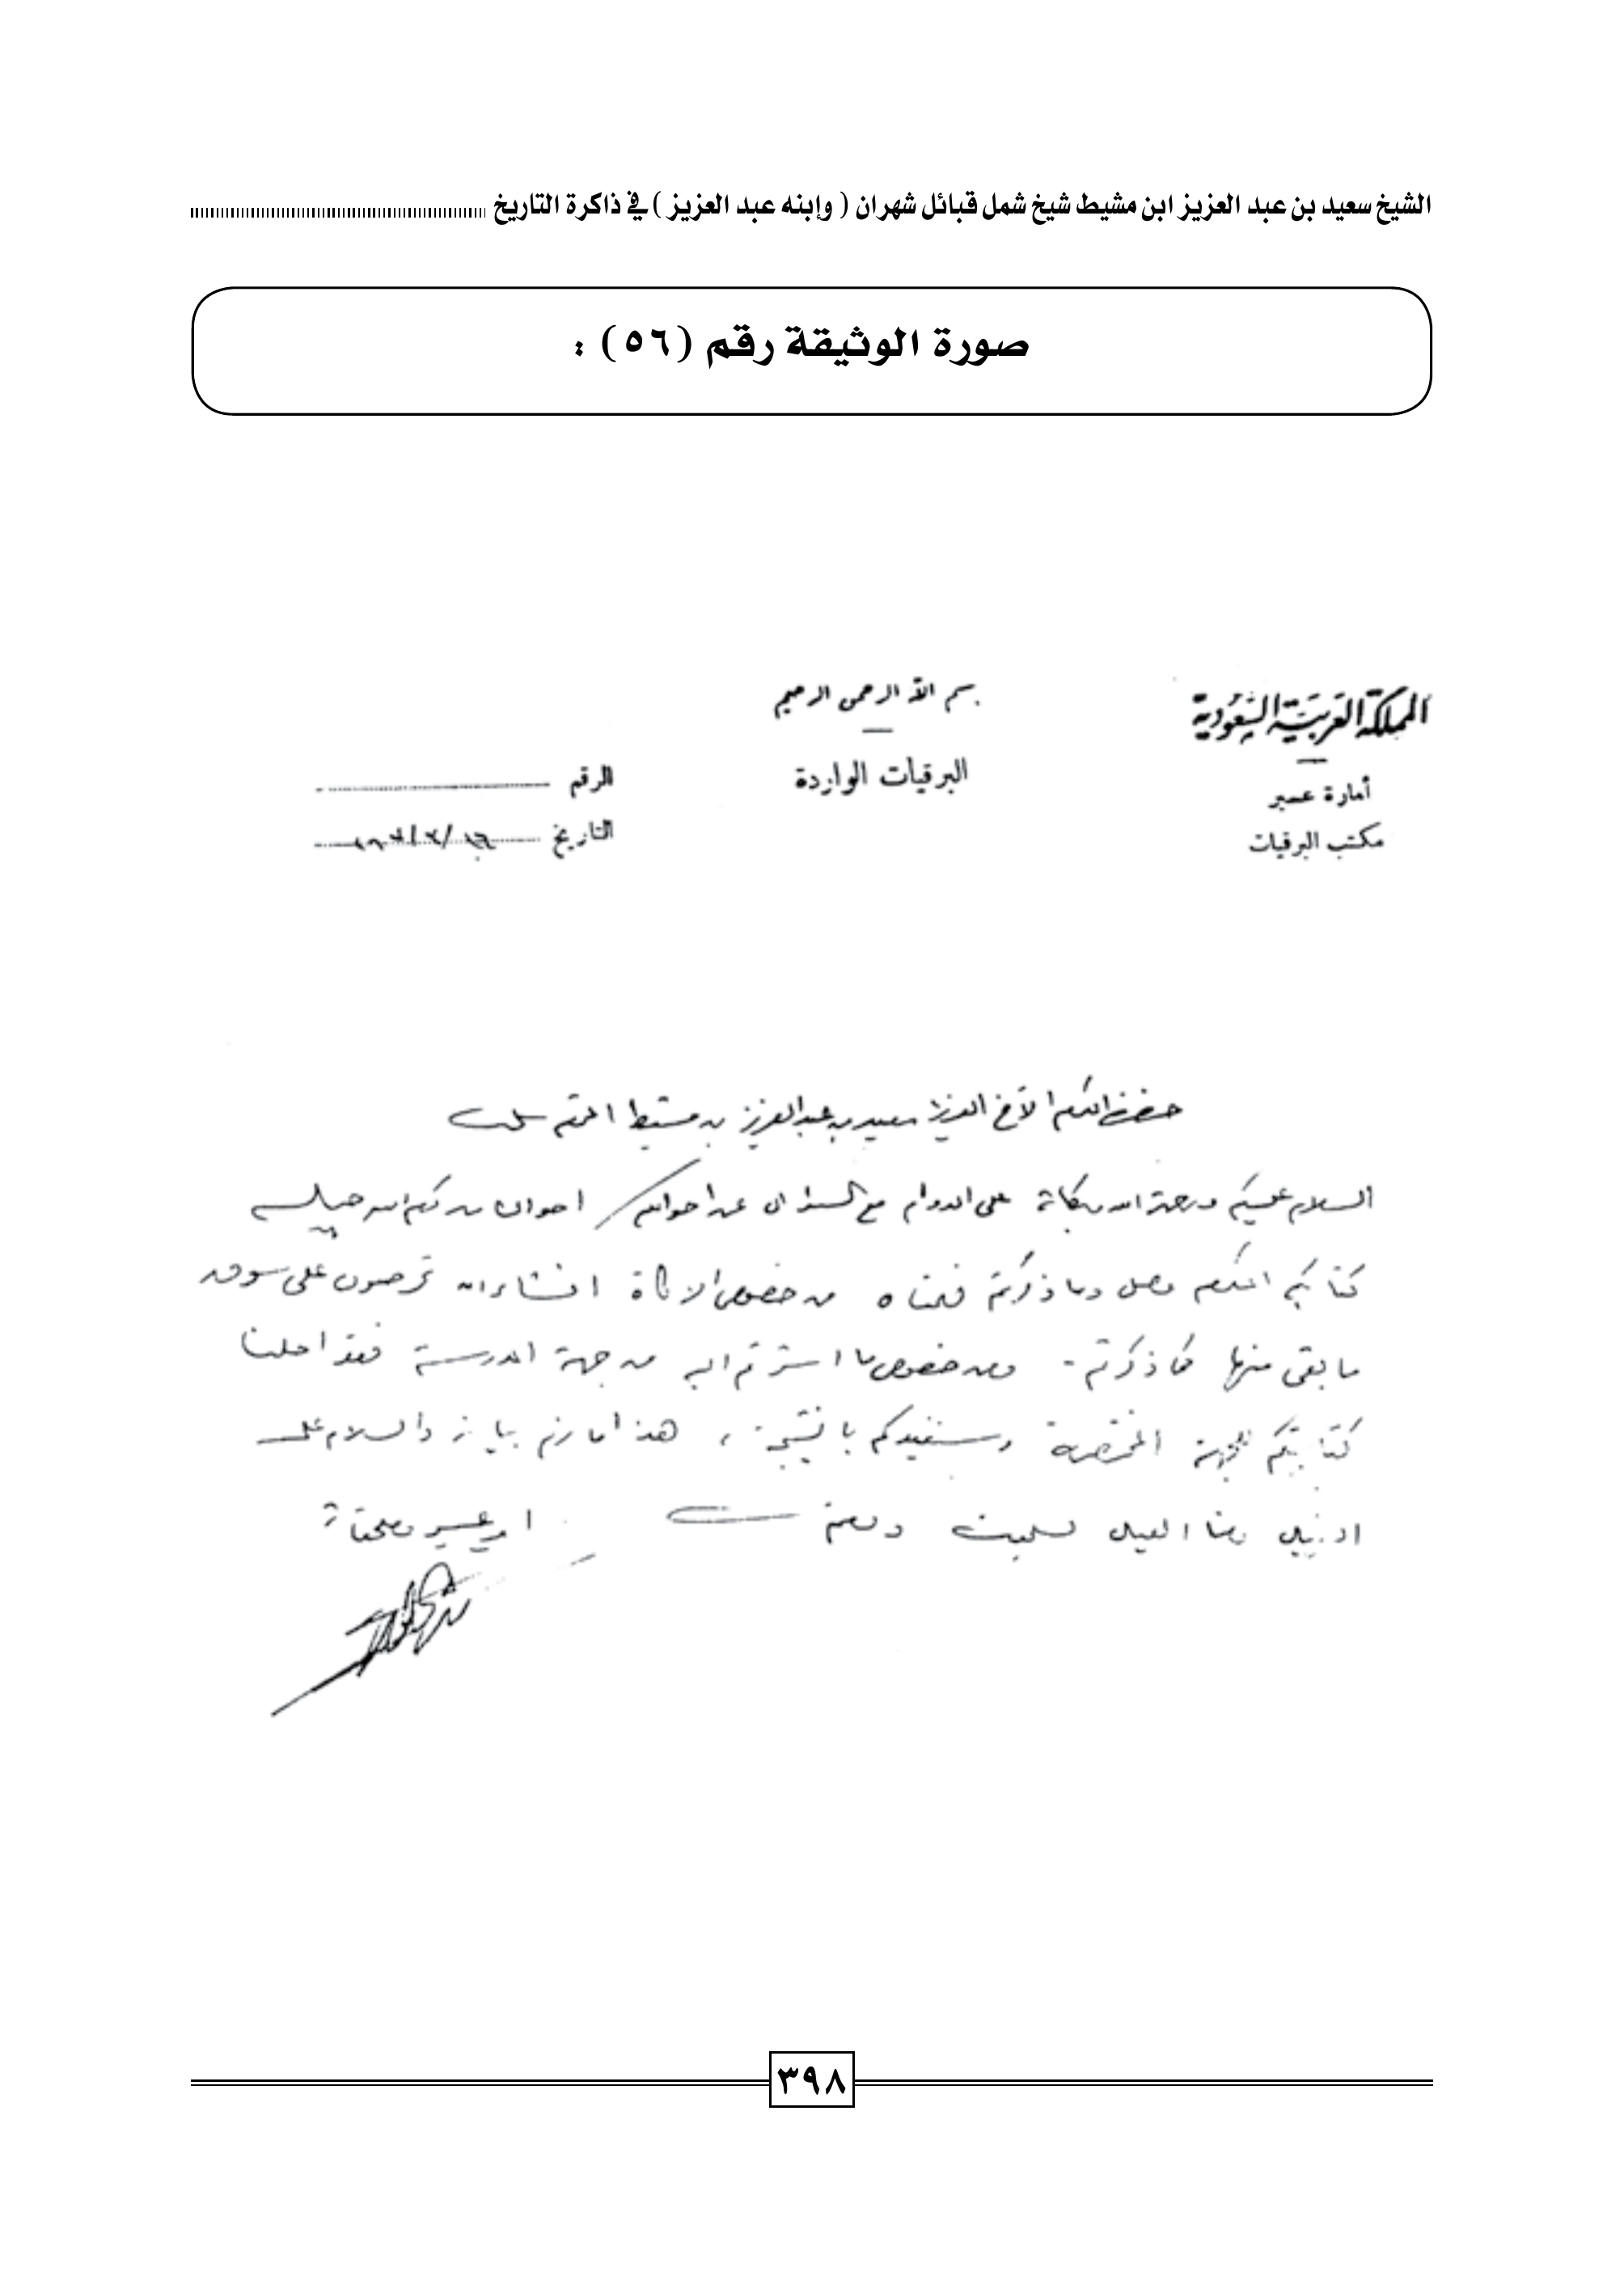 الشيخ سعيد بن عبد العزيز ابن مشيط شيخ شمل قبائل شهران ( وإبنه عبد العزيز ) في ذاكرة التاريخ
صورة الوثيقة رقم (٥٦) :
المملكة العربية السعودية
أمارة عسير
مكتب البرقيات
بسم الله الرحمن الرحيم
البرقيات الواردة
الرقم
التاريخ
حضرة المكرم الأخ العزيز سعيد بن عبد العزيز بن مشيط المحترم سلمه
السلام عليكم ورحمة الله وبركاته على الدوام مع السؤال عن احوالكم احوالنا من كرم الله جميله
كتابكم المكرم وصل وما ذكرتم فهمناه من خصوص الزكاة انشاء الله تحرصون على سوق
ما بقى منها كما ذكرتم - ومن خصوص ما اشرتم اليه من جهة المدرسة فقد احلنا
كتابتكم للجهة المختصة وسنفيدكم بالنتيجة ، هذا ما لزم بيانه والسلام على
العيال ودمتم
امير عسير وملحقاته
٣٩٨